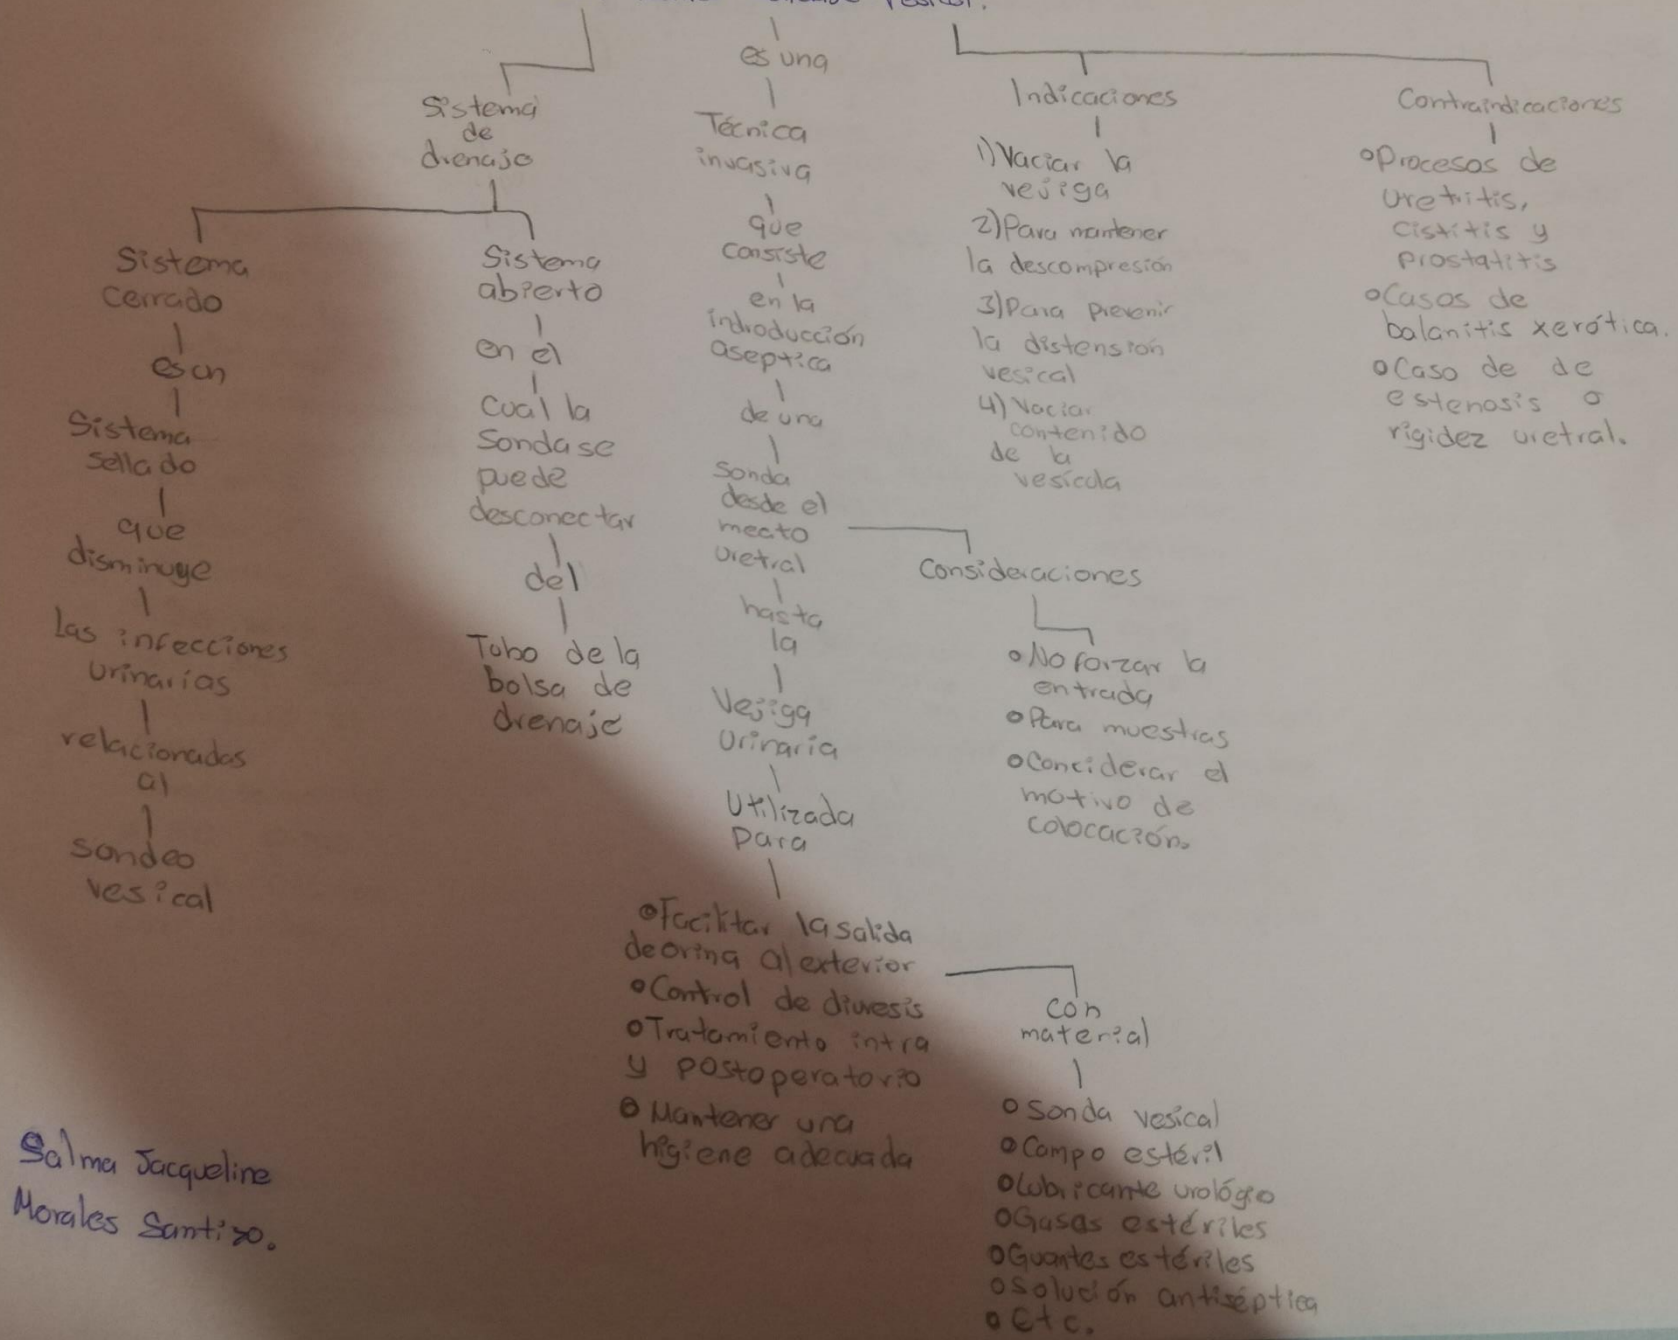 vesical.
Sistema
de
drenaje
Sistema
cerrado
es un
Sistema
sellado
que
disminuye
Las infecciones
urinarias
relacionadas
al
sondeo
vesical
Sistema
abierto
en el
cual la
sonda se
puede
desconectar
del
Tubo de la
bolsa de
drenaje
es una
Técnica
invasiva
que
consiste
en la
introducción
aseptica
de una
sonda
desde el
meato
uretral
hasta
la
Vejiga
urinaria
Utilizada
para
Facilitar la salida
de orina al exterior
Control de diuresis
Tratamiento intra
y postoperatorio
Mantener una
higiene adecuada
Consideraciones
No forzar la
entrada
Para muestras
Conciderar el
motivo de
colocación.
con
material
Sonda vesical
Campo estéril
Lubricante urológio
Gasas estériles
Guantes estériles
Solución antiséptica
Etc.
Indicaciones
1) Vaciar la
vejiga
2) Para mantener
la descompresión
3) Para prevenir
la distensión
vesical
4) Vaciar
contenido
de la
vesícula
Contraindicaciones
Procesos de
uretritis,
cistitis y
prostatitis
Casos de
balanitis xerótica.
Caso de de
estenosis o
rigidez uretral.
Salma Jacqueline
Morales Santizo.